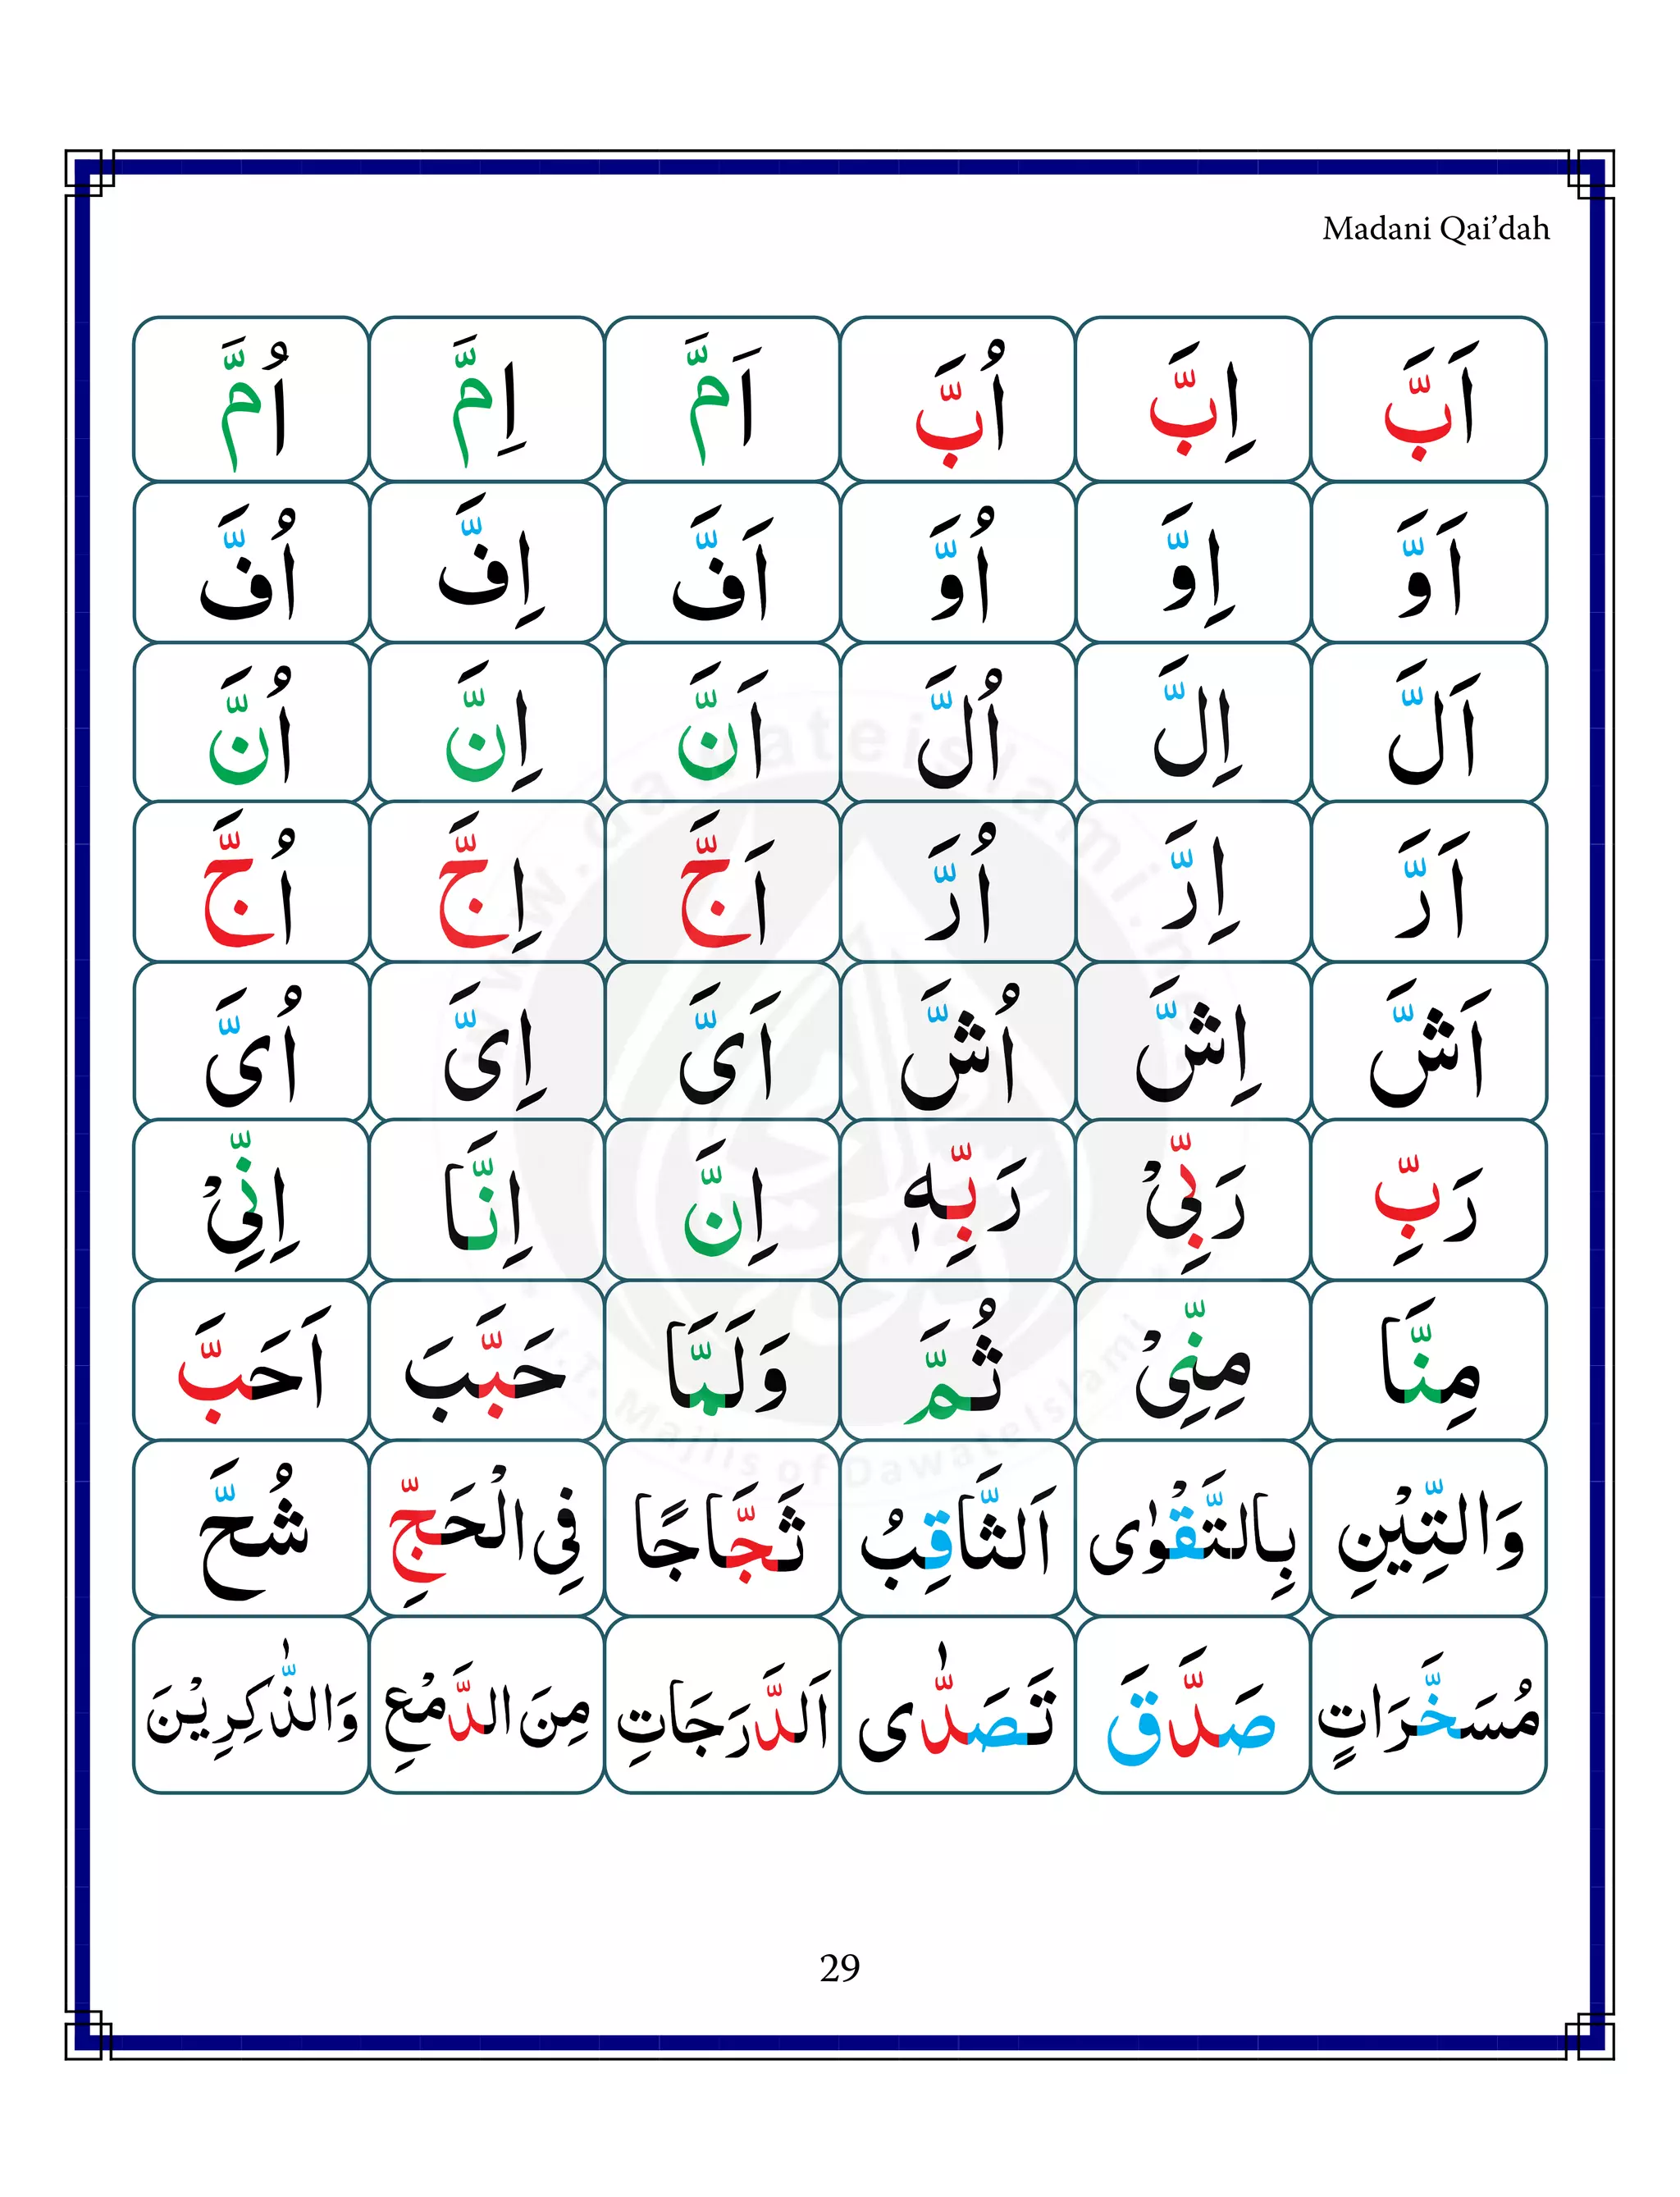 Madani Qai’dah
اَبَّ اِبَّ اُبَّ اَمَّ اِمَّ اُمَّ
اَوَّ اِوَّ اُوَّ اَفَّ اِفَّ اُفَّ
اَلَّ اِلَّ اُلَّ اَنَّ اِنَّ اُنَّ
اَرَّ اِرَّ اُرَّ اَجَّ اِجَّ اُجَّ
اَشَّ اِشَّ اُشَّ اَیَّ اِیَّ اُیَّ
رَبِّ رَبِّیْ رَبِّهٖ اِنَّ اِنَّا اِنِّیْ
مِنَّا مِنِّیْ ثُمَّ وَلَمَّا حَبَّبَ اَحَبَّ
وَالتِّیْنِ بِالتَّقْوٰی اَلثَّاقِبُ ثَجَّاجًا فِی الْحَجِّ شُحَّ
مُسَخَّرَاتٍ صَدَّقَ تَصَدّٰی اَلدَّرَجَاتِ مِنَ الدَّمْعِ وَالذّٰکِرِیْنَ
29
www.dawateislami.n
I.T. Majlis of DawateIslami